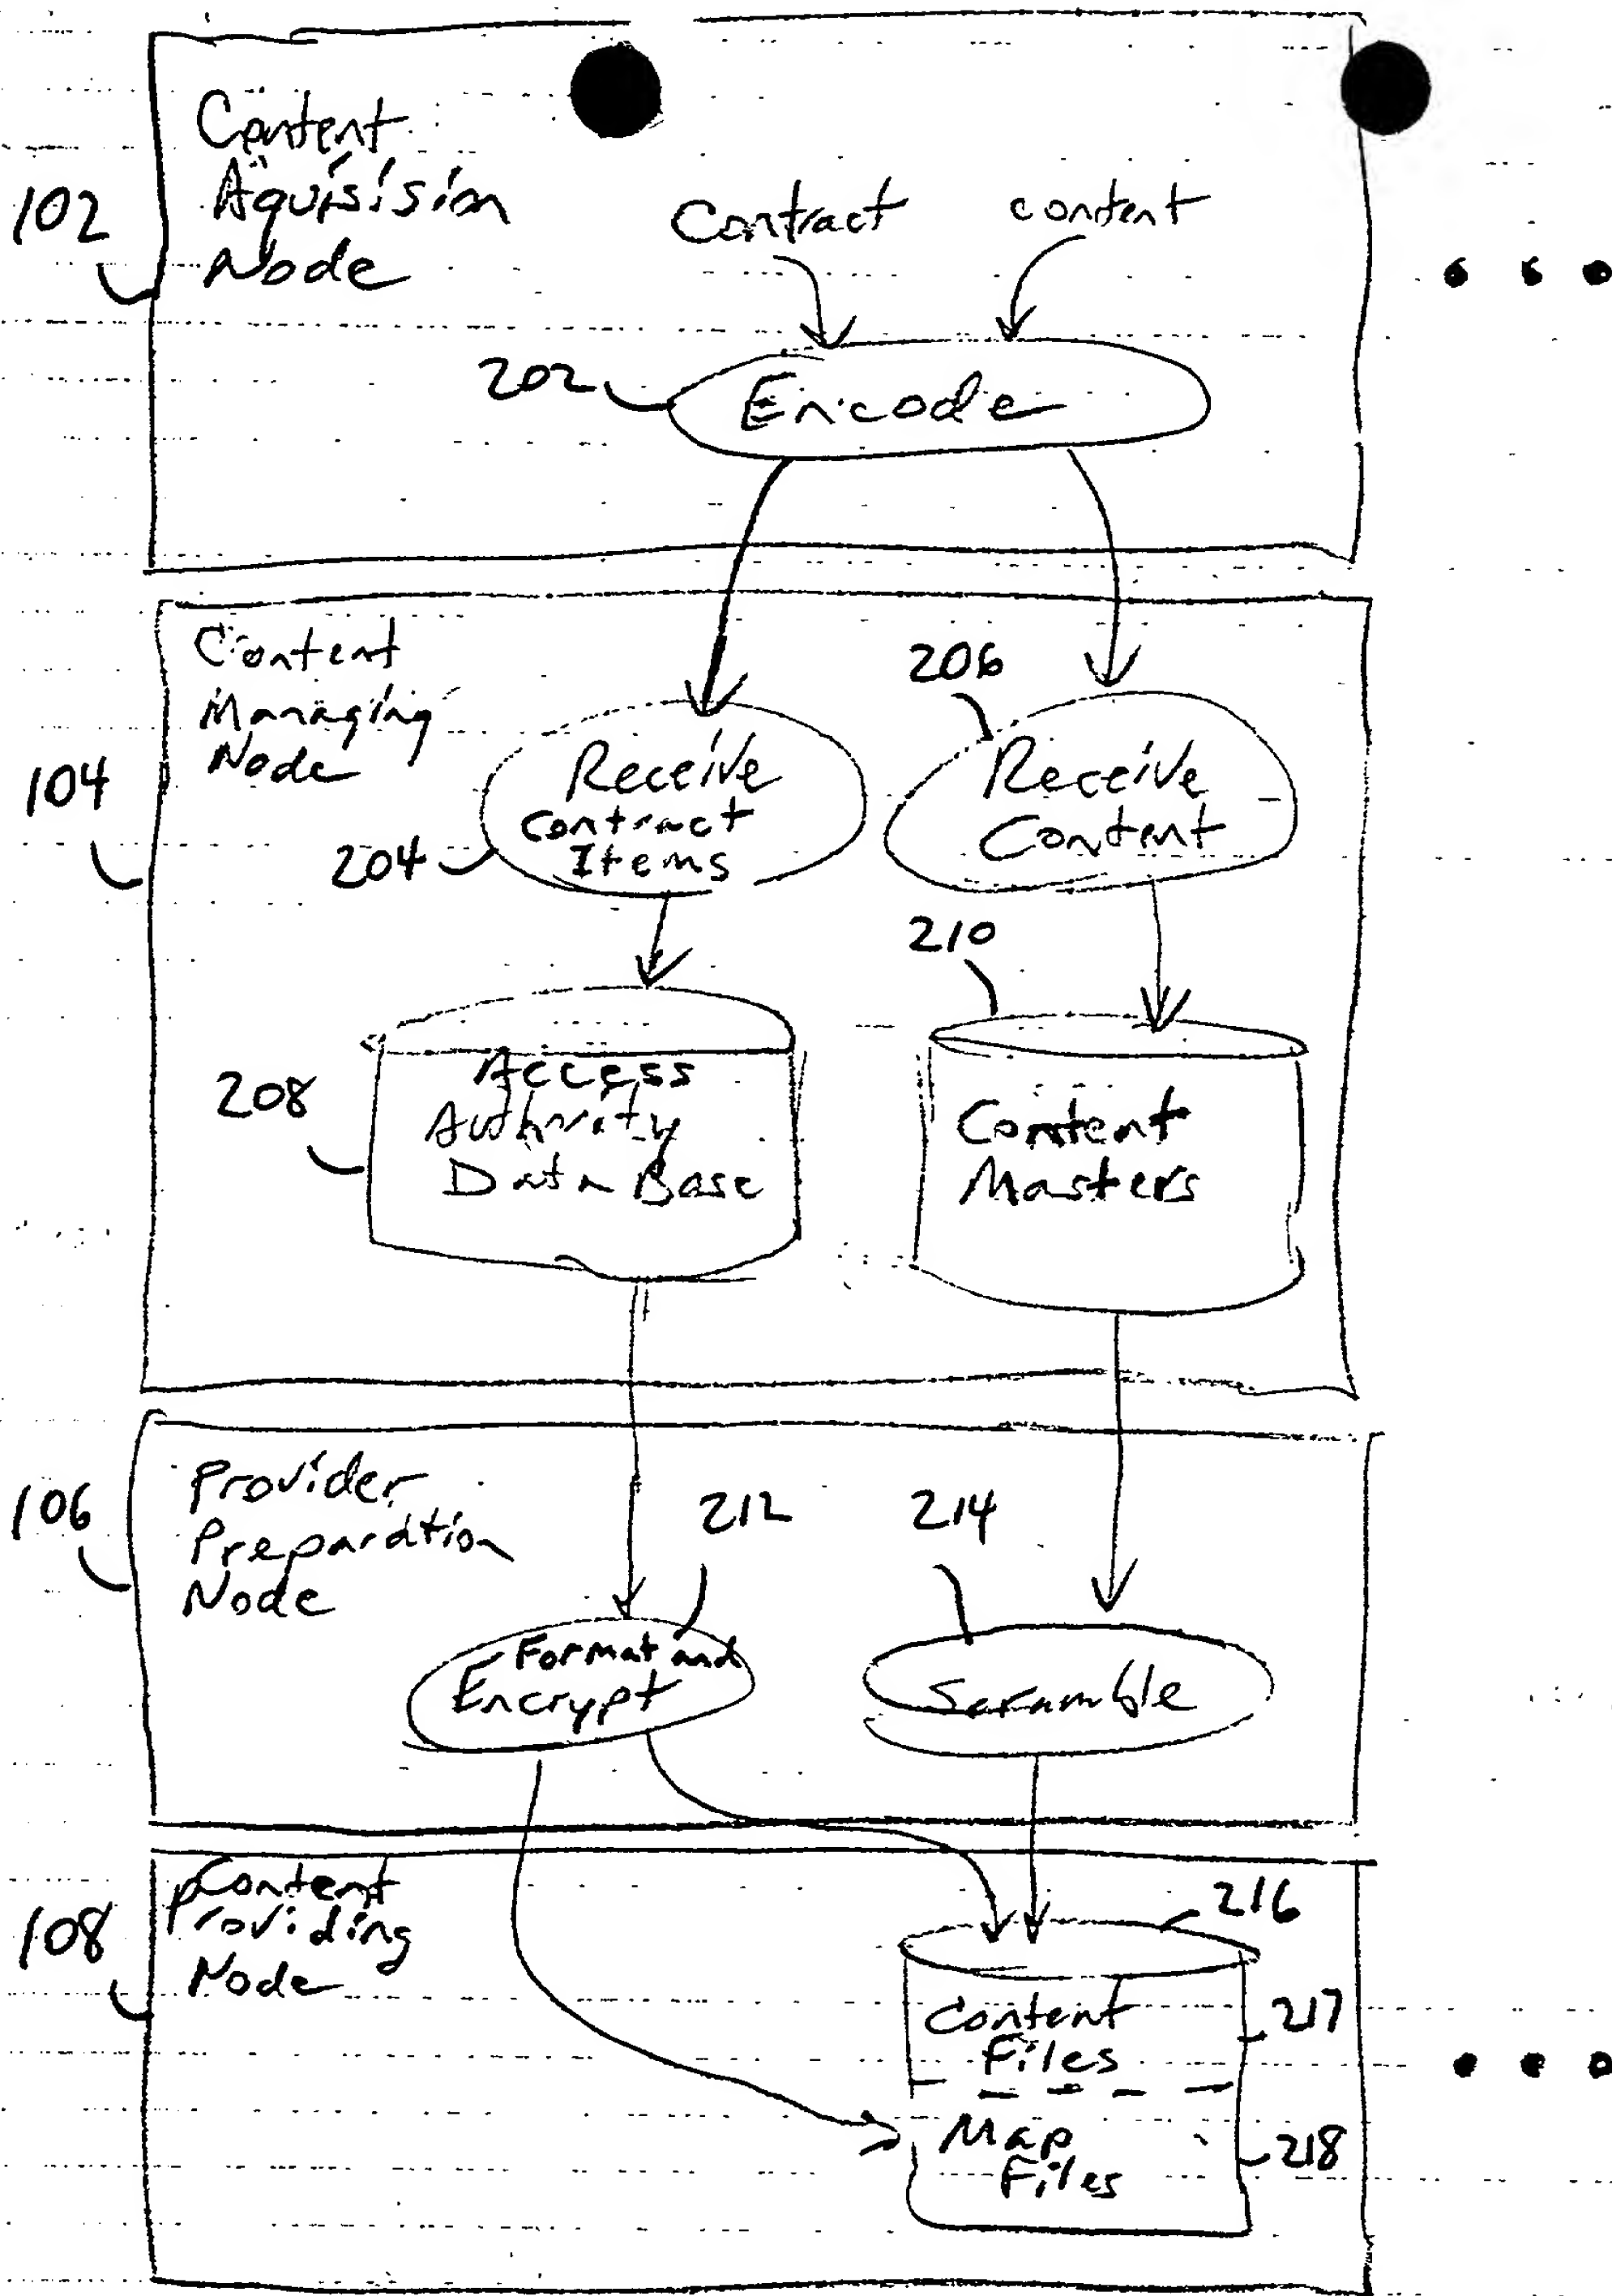 Content
Aquisision
Node
102
Contract
content
202
Encode
Content
Managing
Node
104
206
Receive
Contract
Items
204
Receive
Content
210
208
Access
Authority
Data Base
Content
Masters
Provider
Preparation
Node
106
212
214
Format and
Encrypt
Scramble
Content
Providing
Node
108
216
Content
Files
217
Map
Files
218